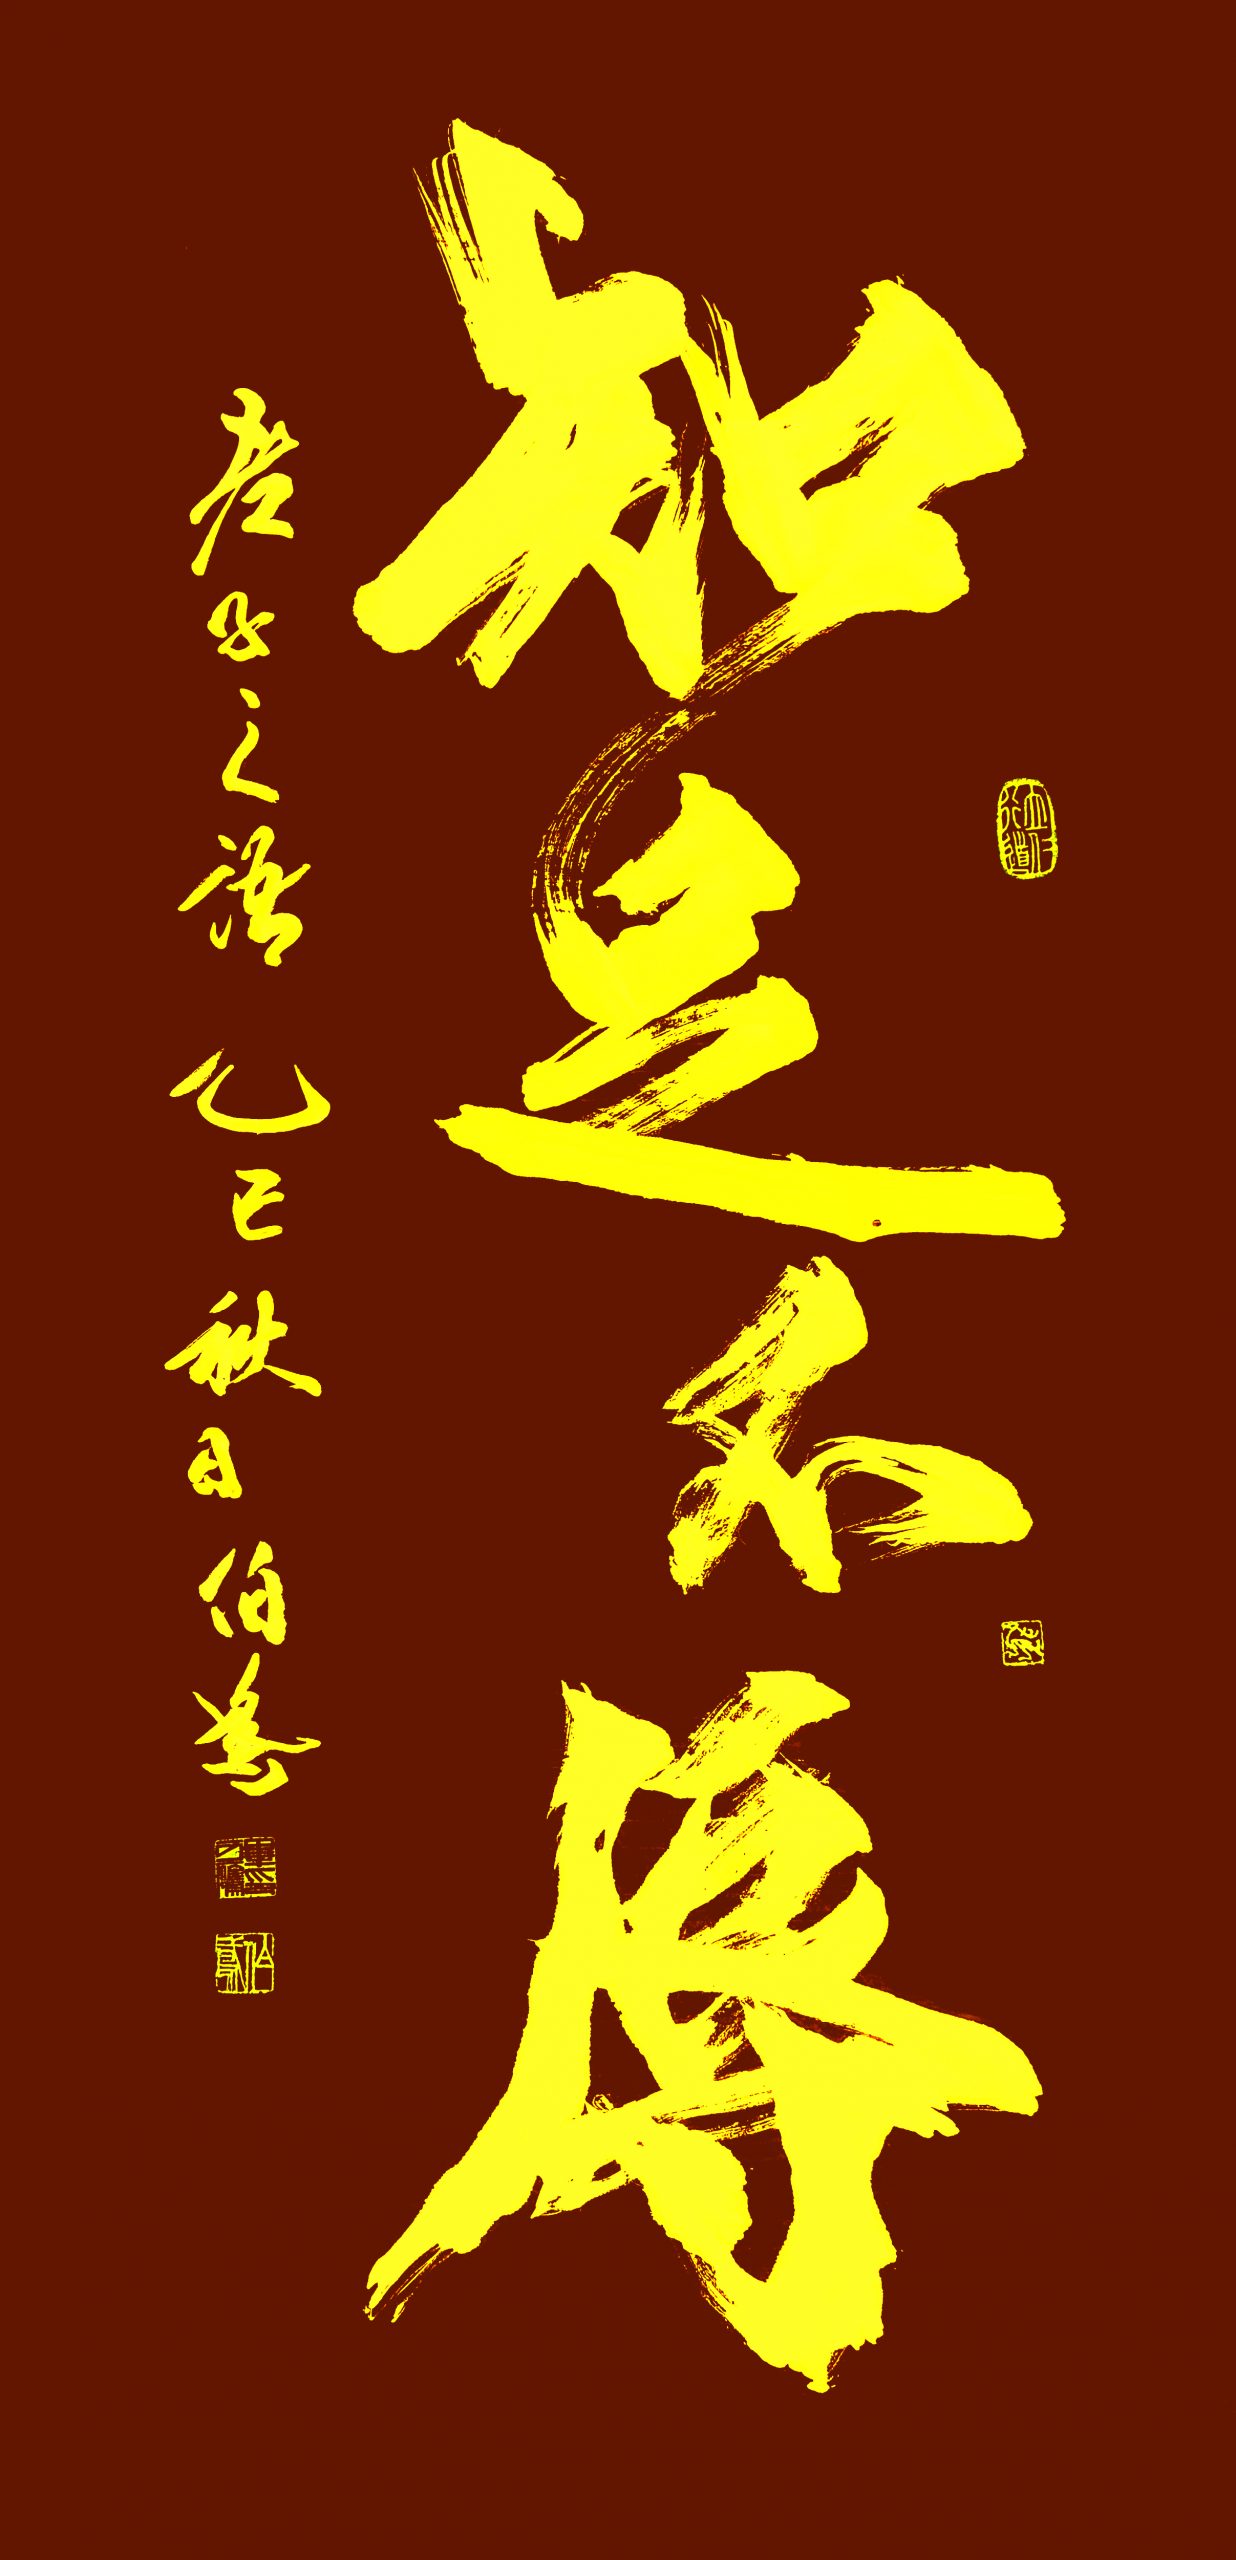 知足不辱
老子之語 乙巳秋日 伯